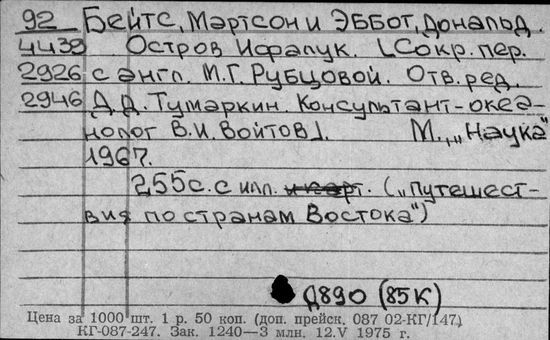 92 Бейтс, Мэртсон и Эббот, Дональд.
4439 Остров Ифалук. [Сокр. пер.
2926 с англ. М.Г. Рубцовой. Отв. ред.
2946 Д.Д. Тумаркин. Консультант-океа-
нолог В.И. Войтов]. М., „Наука“
1967.
255с. с илл. и карт. („Путешест-
вия по странам Востока“)
Д890 (85К)
Цена за 1000 шт. 1 р. 50 коп. (доп. прейск. 087 02-КГ/147)
КГ-087-247. Зак. 1240—3 млн. 12.V 1975 г.